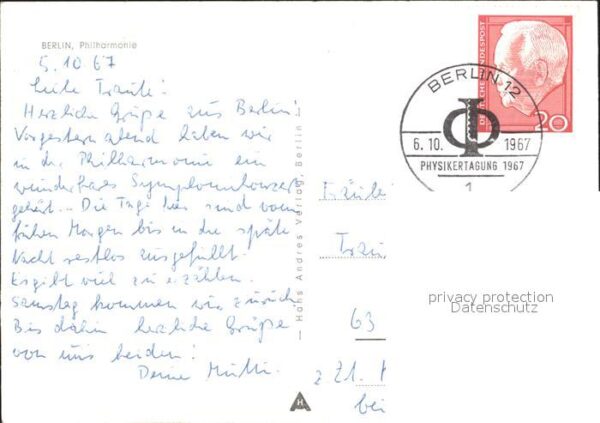 BERLIN, Philharmonie
5.10.67
Liebe Traute!
Herzliche Grüße aus Berlin!
Vorgestern abend haben wir
in der Philharmonie ein
wunderbares Symphoniekonzert
gehört. Die Tage hier sind vom
frühen Morgen bis in die späte
Nacht restlos ausgefüllt.
Es gibt viel zu erzählen.
Samstag kommen wir zurück
Bis dahin herzliche Grüße
von uns beiden!
Deine Mutti.
— Hans Andres Verlag, Berlin —
H
DEUTSCHE BUNDESPOST
20
BERLIN 12
6.10. 1967
PHYSIKERTAGUNG 1967
1
Fräulei
Trau
63
z Zt.
bei
privacy protection
Datenschutz